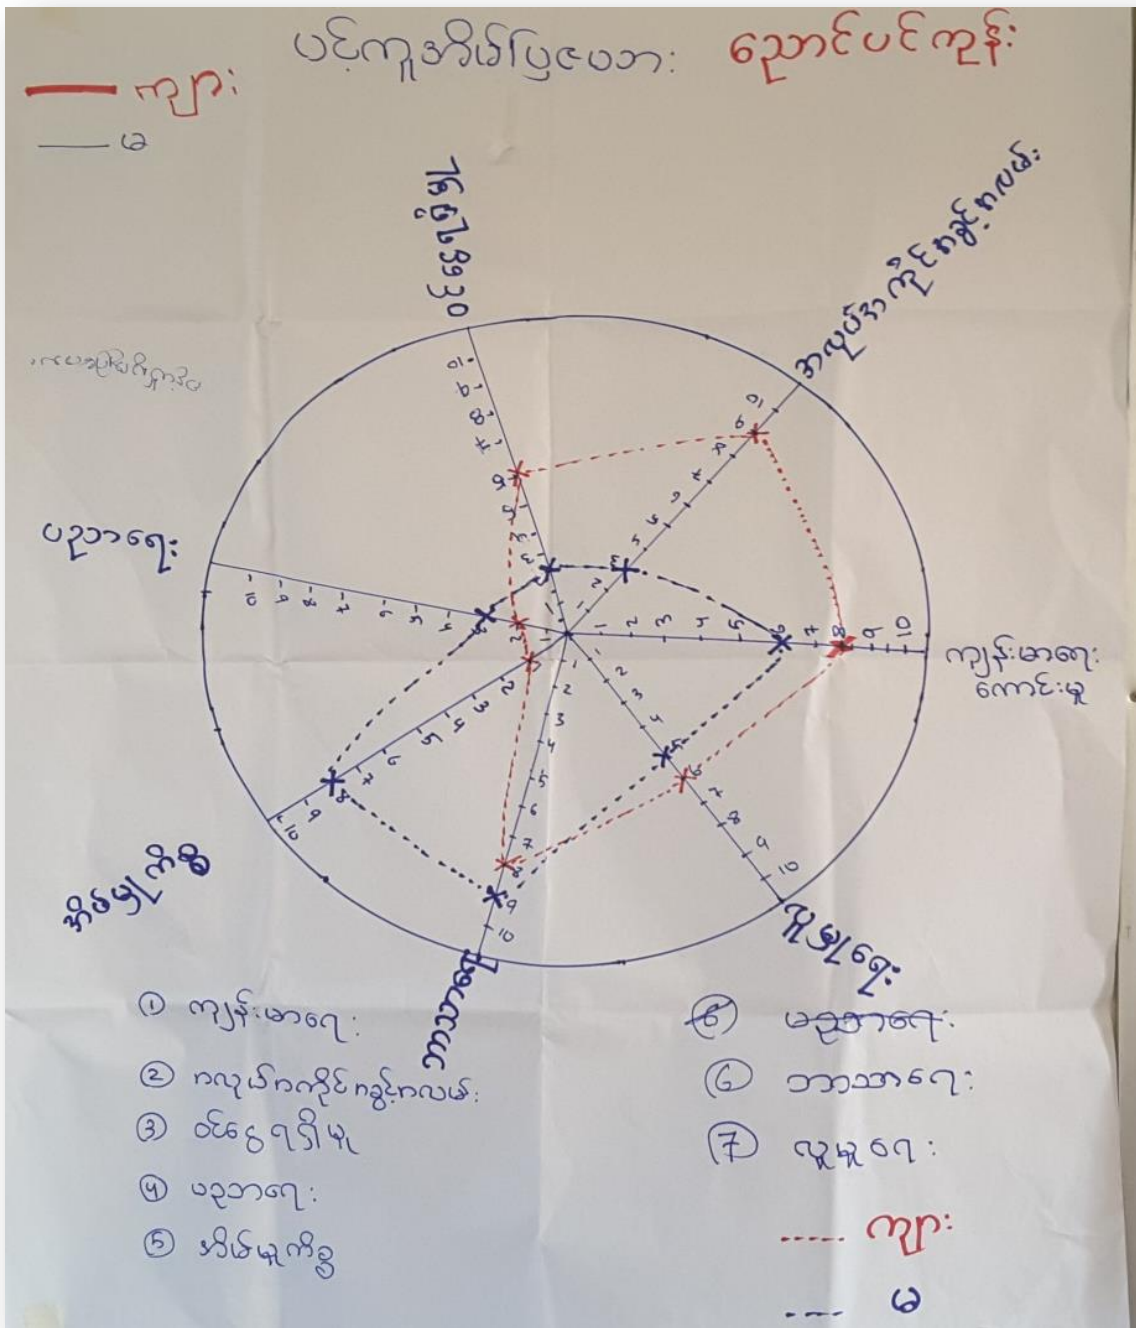 ပင့်ကူအိမ်ပြဇယား ညောင်ပင်ကုန်း
ကျား
မ
ဝင်ငွေရရှိမှု
အလုပ်အကိုင်အခွင့်အလမ်း
ပညာရေး
ကျန်းမာရေး
ကောင်းမှု
အိမ်မှုကိစ္စ
ဘာသာရေး
လူမှုရေး
① ကျန်းမာရေး
② အလုပ်အကိုင်အခွင့်အလမ်း
③ ဝင်ငွေရရှိမှု
④ ပညာရေး
⑤ အိမ်မှုကိစ္စ
⑥ ဘာသာရေး
⑦ လူမှုရေး
ကျား
မ